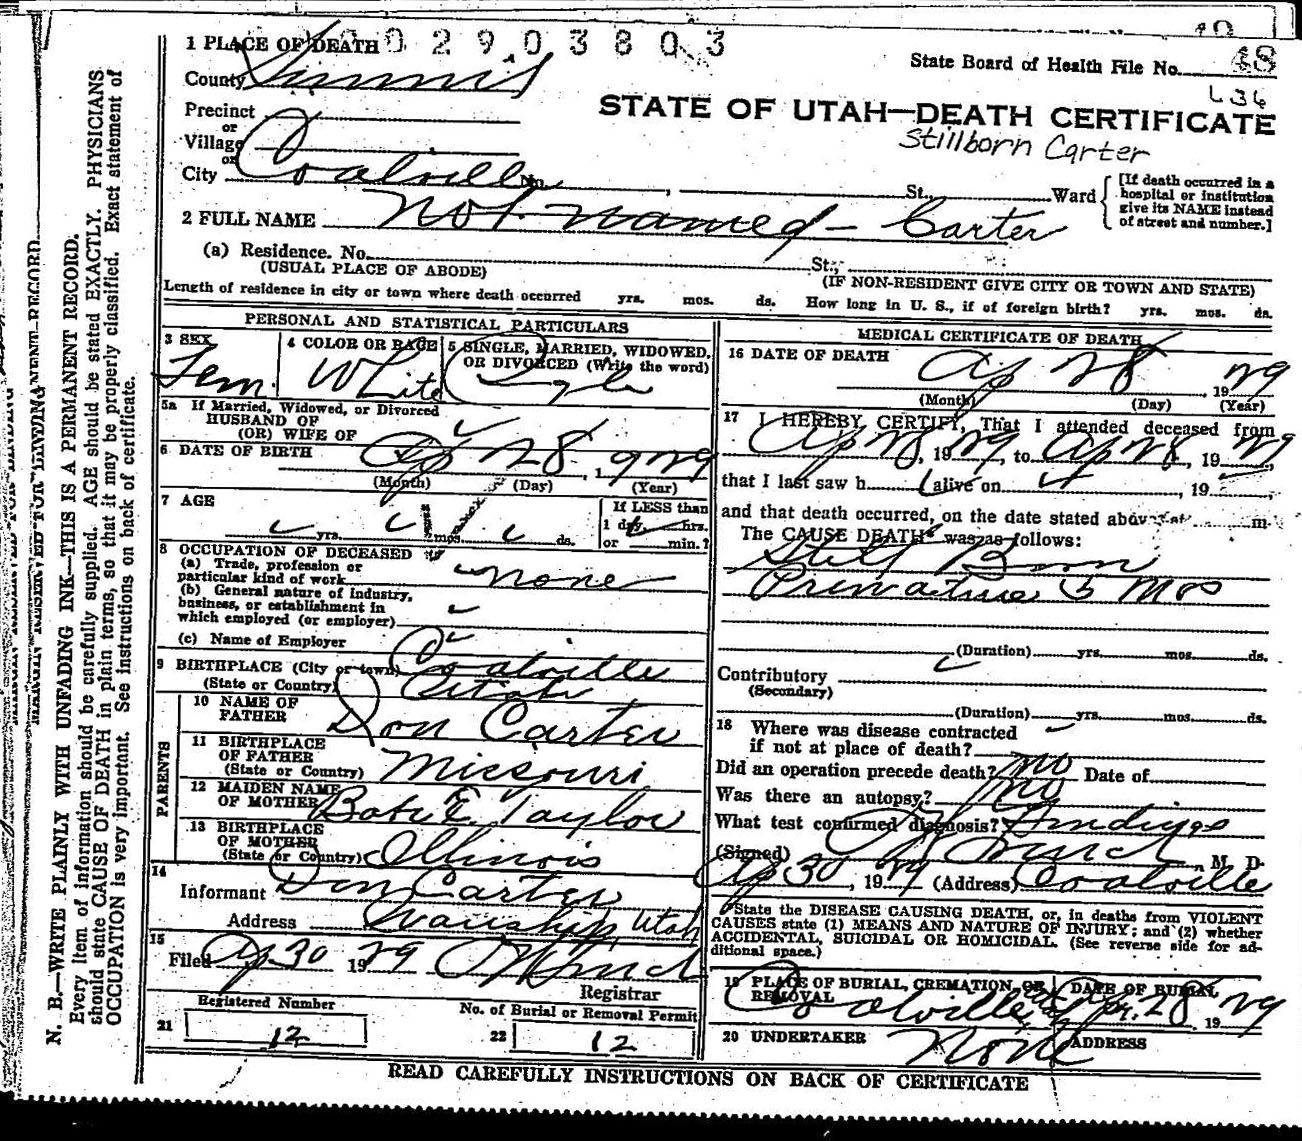 0 0 2 9 0 3 8 0 3
1 PLACE OF DEATH
State Board of Health File No. 48
County Summit
L 36
Precinct
STATE OF UTAH—DEATH CERTIFICATE
or
Stillborn Carter
Village
or
City Coalville No. , St. Ward
[If death occurred in a hospital or institution give its NAME instead of street and number.]
2 FULL NAME Not named - Carter
(a) Residence. No. St.,
(USUAL PLACE OF ABODE) (IF NON-RESIDENT GIVE CITY OR TOWN AND STATE)
Length of residence in city or town where death occurred yrs. mos. ds. How long in U. S., if of foreign birth? yrs. mos. ds.
PERSONAL AND STATISTICAL PARTICULARS
3 SEX Fem.
4 COLOR OR RACE White
5 SINGLE, MARRIED, WIDOWED, OR DIVORCED (Write the word) Single
5a If Married, Widowed, or Divorced
HUSBAND OF
(OR) WIFE OF
6 DATE OF BIRTH Ap 28, 1929
(Month) (Day) (Year)
7 AGE
yrs. mos. ds.
If LESS than
1 day, hrs.
or min.?
8 OCCUPATION OF DECEASED
(a) Trade, profession or
particular kind of work none
(b) General nature of industry,
business, or establishment in
which employed (or employer)
(c) Name of Employer
9 BIRTHPLACE (City or town) Coalville
(State or Country) Utah
PARENTS
10 NAME OF
FATHER Don Carter
11 BIRTHPLACE
OF FATHER
(State or Country) Missouri
12 MAIDEN NAME
OF MOTHER E Taylor
13 BIRTHPLACE
OF MOTHER
(State or Country) Illinois
14
Informant Don Carter
Address Wanship Utah
15
Filed Ap 30 1929
Registrar
Registered Number
21 12
No. of Burial or Removal Permit
22 12
MEDICAL CERTIFICATE OF DEATH
16 DATE OF DEATH Ap 28, 1929
(Month) (Day) (Year)
17 I HEREBY CERTIFY, That I attended deceased from
Ap 28, 1929, to Ap 28, 1929,
that I last saw h alive on , 19
and that death occurred, on the date stated above, at m.
The CAUSE DEATH* was as follows:
Still Born
Premature 5 Mos
(Duration) yrs. mos. ds.
Contributory
(Secondary)
(Duration) yrs. mos. ds.
18 Where was disease contracted
if not at place of death?
Did an operation precede death? no Date of
Was there an autopsy? no
What test confirmed diagnosis? Findings
(Signed) , M. D.
Ap 30, 1929 (Address) Coalville
*State the DISEASE CAUSING DEATH, or, in deaths from VIOLENT
CAUSES state (1) MEANS AND NATURE OF INJURY; and (2) whether
ACCIDENTAL, SUICIDAL OR HOMICIDAL. (See reverse side for ad-
ditional space.)
19 PLACE OF BURIAL, CREMATION, OR
REMOVAL Coalville
DATE OF BURIAL
Apr. 28, 1929
20 UNDERTAKER None
ADDRESS
READ CAREFULLY INSTRUCTIONS ON BACK OF CERTIFICATE
N. B.—WRITE PLAINLY WITH UNFADING INK—THIS IS A PERMANENT RECORD.
Every item of information should be carefully supplied. AGE should be stated EXACTLY. PHYSICIANS
should state CAUSE OF DEATH in plain terms, so that it may be properly classified. Exact statement of
OCCUPATION is very important. See instructions on back of certificate.